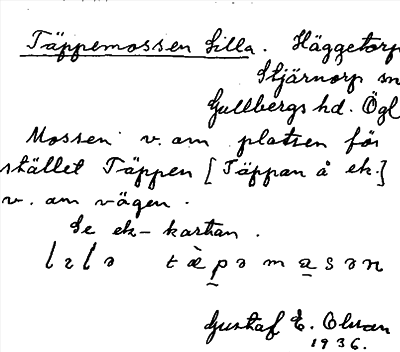 Täppemossen Lilla. Häggetorp
Stjärnorp sn
Gullbergs hd. Ögl
Mossen v. om platsen för
stället Täppen [Täppan å ek.]
v. om vägen.
Se ek-kartan.
lɩlə tæ̀pəmasən
Gustaf E. Olsson
1936.